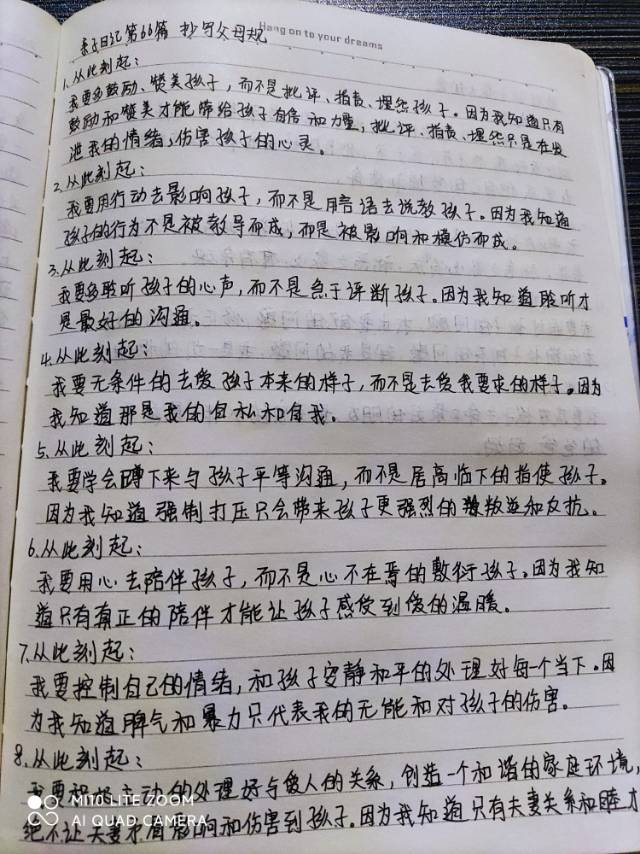 亲子日记第66篇 抄写父母规
Hang on to your dreams
1.从此刻起:
我要多鼓励、赞美孩子,而不是批评、指责、埋怨孩子。因为我知道只有
鼓励和赞美才能带给孩子自信和力量,批评、指责、埋怨只是在发
泄我的情绪,伤害孩子的心灵。
2.从此刻起:
我要用行动去影响孩子,而不是用言语去说教孩子。因为我知道
孩子的行为不是被教导而成,而是被影响和模仿而成。
3.从此刻起:
我要多聆听孩子的心声,而不是急于评断孩子。因为我知道聆听才
是最好的沟通。
4.从此刻起:
我要无条件的去爱孩子本来的样子,而不是去爱我要求的样子。因为
我知道那是我的自私和自我。
5.从此刻起:
我要学会蹲下来与孩子平等沟通,而不是居高临下的指使孩子。
因为我知道强制打压只会带来孩子更强烈的叛逆和反抗。
6.从此刻起:
我要用心去陪伴孩子,而不是心不在焉的敷衍孩子。因为我知
道只有真正的陪伴才能让孩子感受到爱的温暖。
7.从此刻起:
我要控制自己的情绪,和孩子安静和平的处理好每一个当下。因
为我知道脾气和暴力只代表我的无能和对孩子的伤害。
8.从此刻起:
我要积极主动的处理好与爱人的关系,创造一个和谐的家庭环境,
绝不让夫妻矛盾影响和伤害到孩子。因为我知道只有夫妻关系和睦才
MI 10 LITE ZOOM
AI QUAD CAMERA